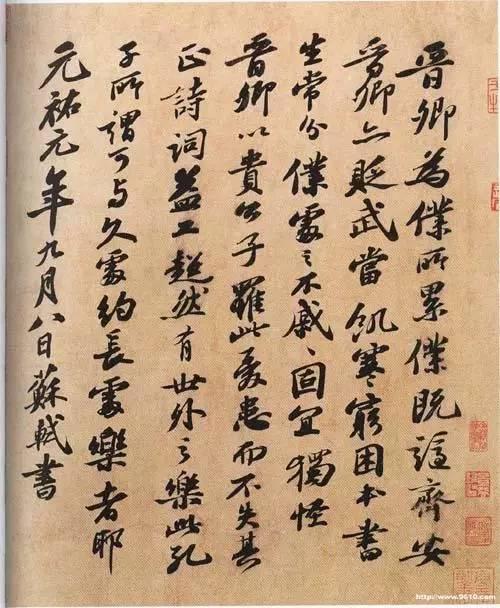 晉卿為僕所累僕既謫齊安
晉卿亦貶武當飢寒窮困本書
生常分僕處之不戚〻固宜獨怪
晉卿以貴公子罹此憂患而不失其
正詩詞益工超然有世外之樂此孔
子所謂可與久處約長處樂者耶
元祐元年九月八日蘇軾書
http://www.9610.com